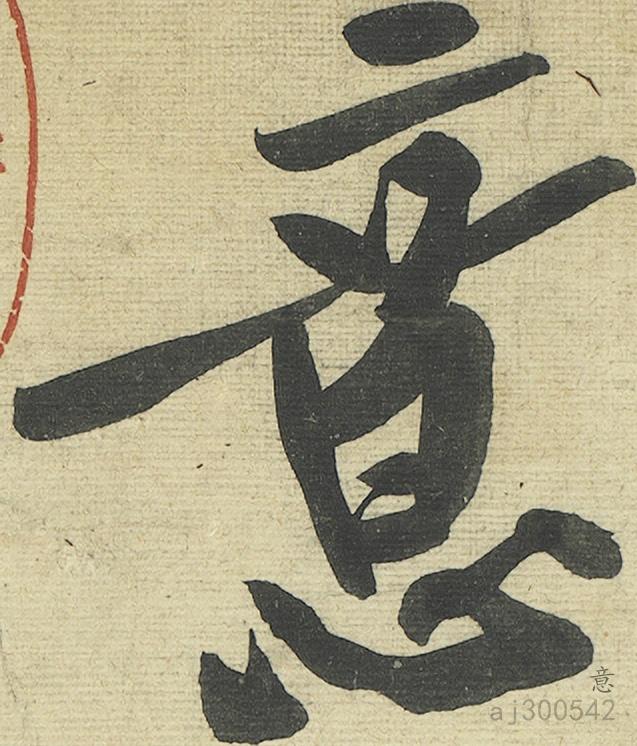 意
意
aj300542